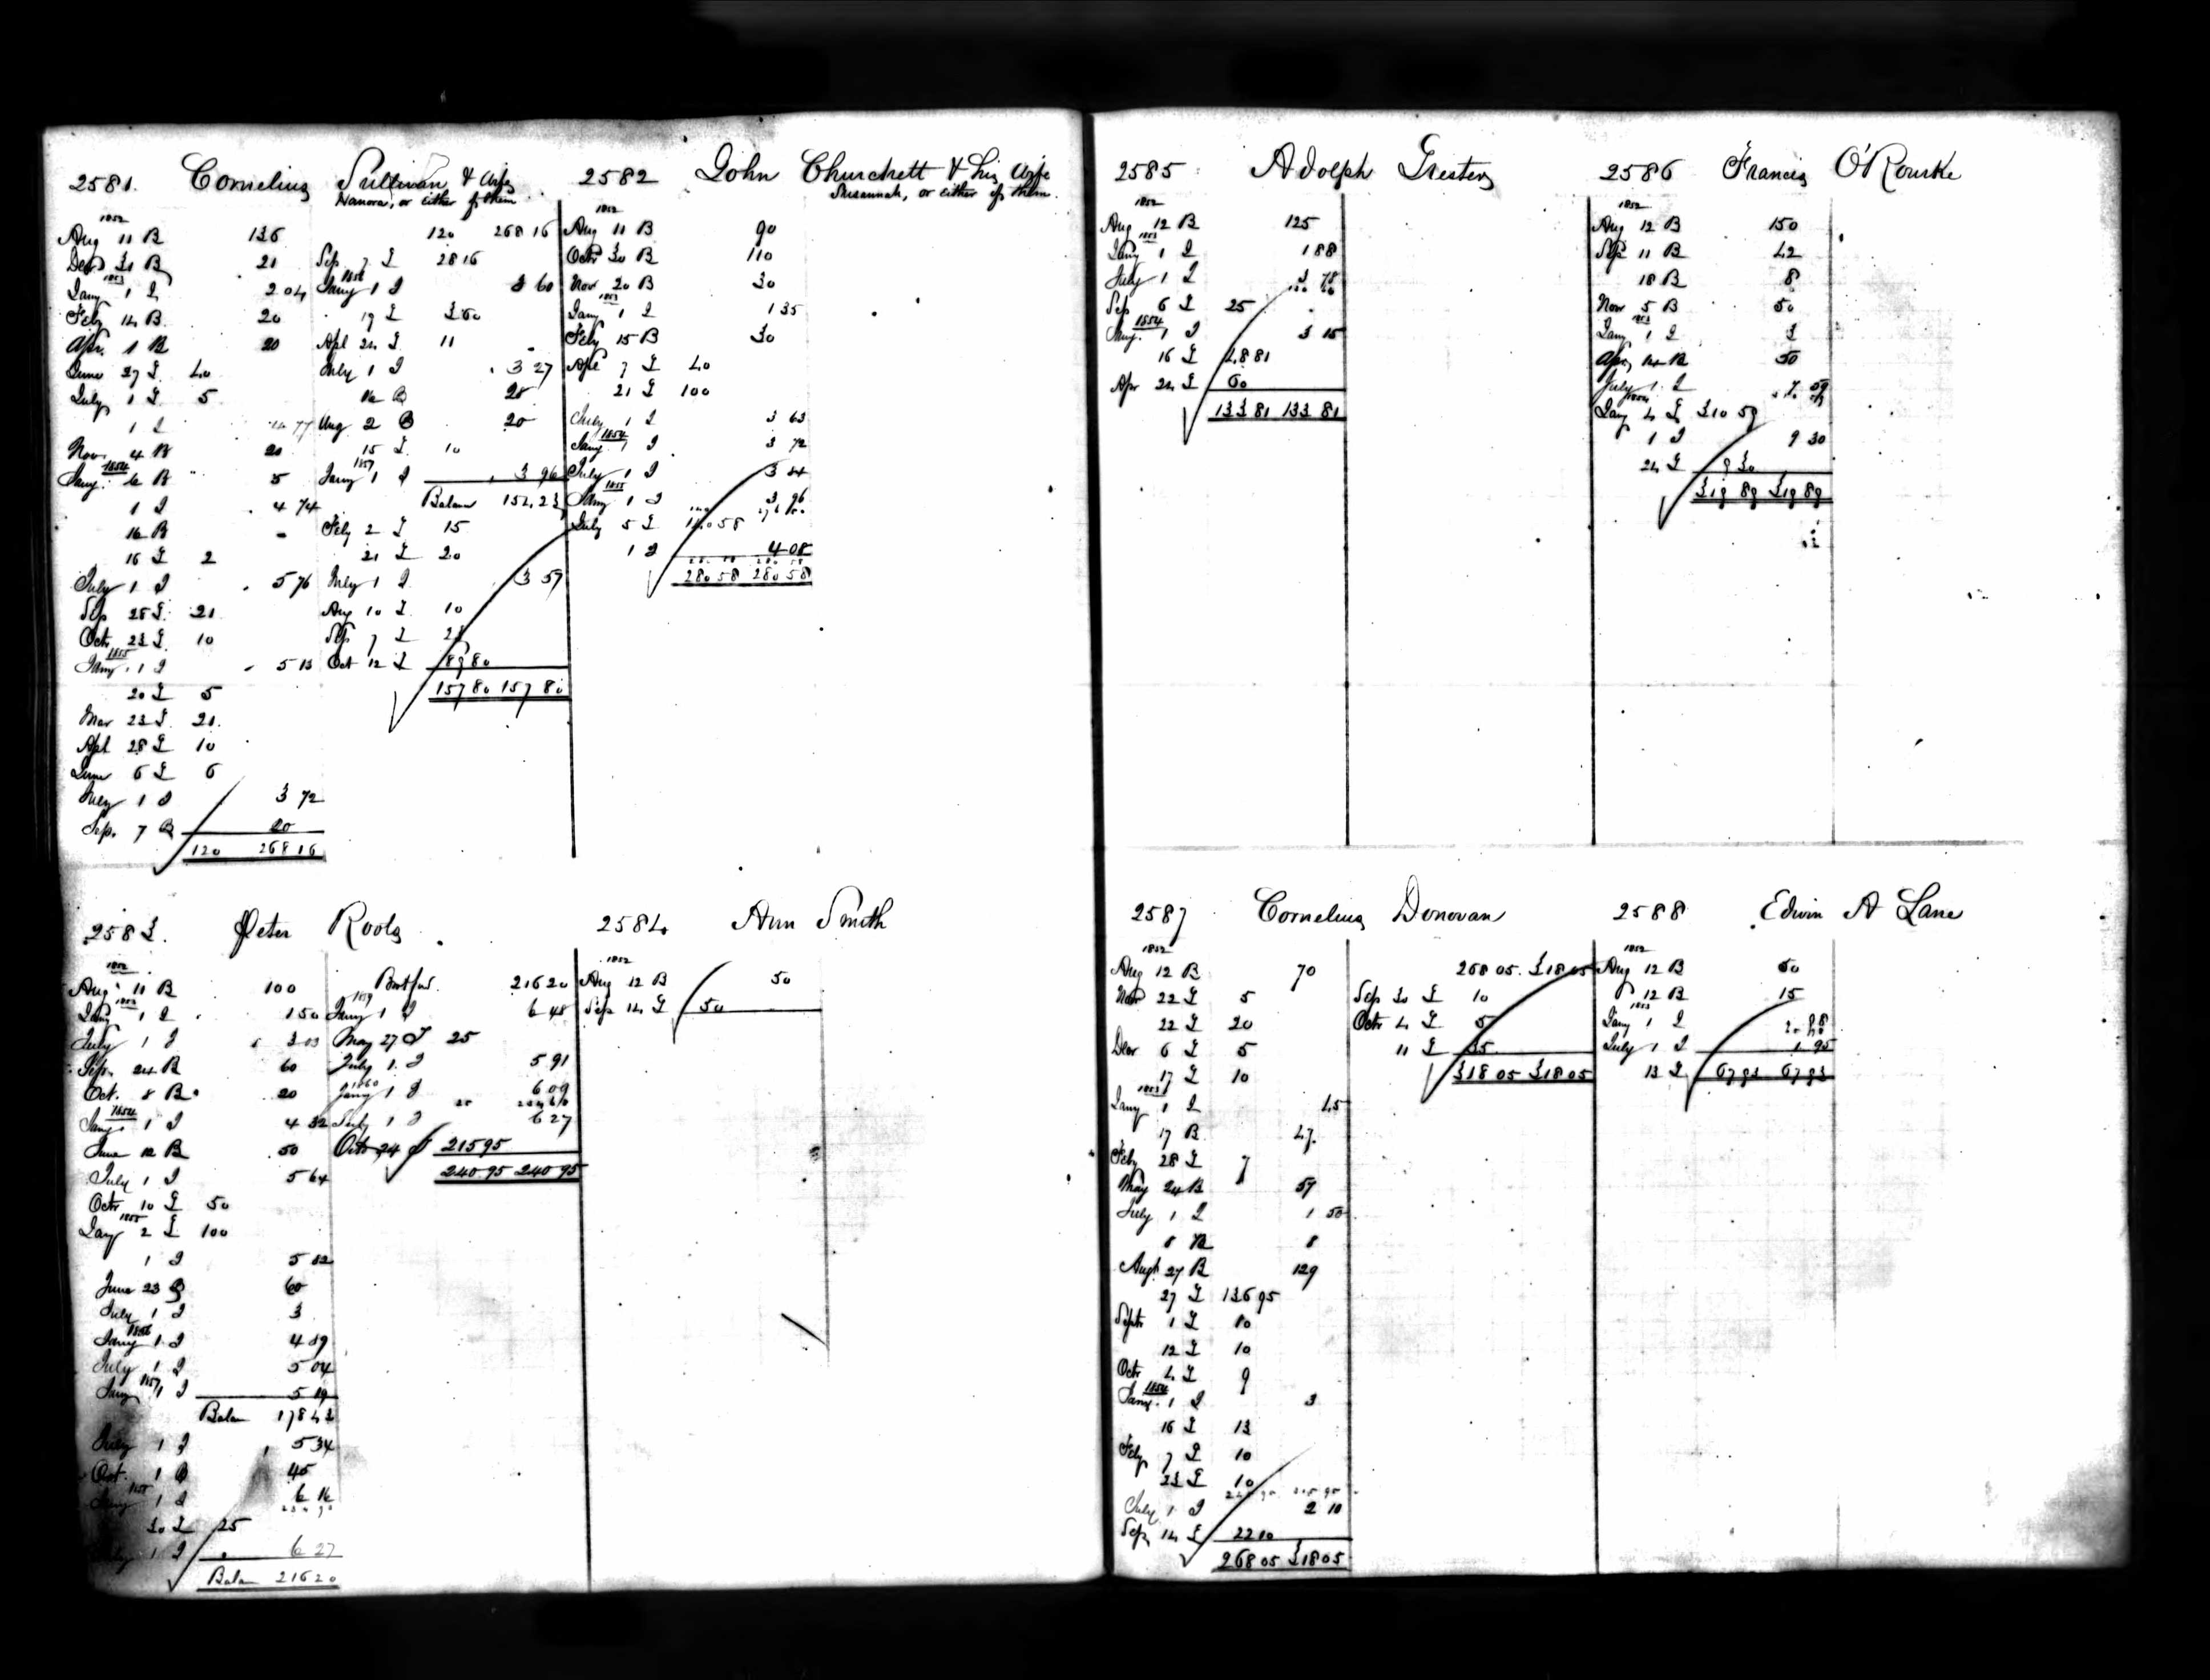 2581. Cornelius Sullivan & Wife
Hanora, or either of them
1852
Aug 11 B 136
Decr 31 B 21
1853
Jany 1 I 2 04
Feby 14 B 20
Apr. 1 B 20
June 27 T 40
July 1 T 5
1 I 4 77
Nov. 4 B 20
1854
Jany. 6 B 5
1 I 4 74
16 B
16 T 2
July 1 I 5 76
Sep 28 T 21
Octr 23 T 10
1855
Jany. 1 I 5 13
20 T 5
Mar 23 T 21
Apl 28 T 10
June 6 T 6
July 1 I 3 72
Sep. 7 B 20
120 268 16
120 268 16
Sep 7 T 28 16
1856
Jany 1 I 3 60
19 T 3 60
Apl 24 T 11
July 1 I 3 27
14 B 20
Aug 2 B 20
15 T 10
1857
Jany 1 I 3 96
Balance 154.23
Feby 2 T 15
21 T 20
July 1 I 3 57
Aug 10 T 10
Sep 7 T 23
Oct 12 T 89 80
157 80 157 80
2582 John Churchett & his Wife
Susannah, or either of them.
1852
Aug 11 B 90
Octr 30 B 110
Nov 20 B 30
1853
Jany 1 I 1 35
Feby 15 B 30
Apl 7 T 40
21 T 100
July 1 I 3 63
1854
Jany 1 I 3 72
July 1 I 3 84
1855
Jany 1 I 3 96
July 5 T 140 58
1 I 4 08
280 58 280 58
2583. Peter Rools
1852
Aug 11 B 100
1853
Jany 1 I 1 50
July 1 I 3 03
Sep. 24 B 60
Oct. 8 B 20
1854
Jany. 1 I 4 32
June 12 B 50
July 1 I 5 64
Octr 10 T 50
1855
Jany 2 T 100
1 I 5 82
June 23 B 60
July 1 I 3
1856
Jany 1 I 4 89
July 1 I 5 04
1857
Jany 1 I 5 19
Balan 178 43
July 1 I 5 34
Oct. 1 B 45
1858
Jany 1 I 6 16
30 T 25
1 I 6 27
Balan 216 20
Brot for. 216 20
1859
Jany 1 I 6 48
May 27 T 25
July 1. I 5 91
1860
Jany 1 I 6 09
July 1 I 6 27
Octr 24 T 215 95
240.95 240 95
2584 Ann Smith
1852
Aug 12 B 50
Sep 14 T 50
2585 Adolph Grester
1852
Aug 12 B 125
1853
Jany 1 I 1 88
July 1 I 3 78
Sep 6 T 25
1854
Jany. 1 I 3 15
16 T 48 81
Apr 24 T 60
133 81 133 81
2586 Francis O'Rourke
1852
Aug 12 B 150
Sep 11 B 42
18 B 8
Nov 5 B 50
1853
Jany 1 I 3
Apr, 14 B 50
July 1 I 7 59
1854
Jany 4 T 310 59
1 I 9 30
24 T 9 30
319 89 319 89
2587 Cornelius Donovan
1852
Aug 12 B 70
Nov 22 T 5
22 T 20
Decr 6 T 5
17 T 10
1853
Jany 1 I 45
17 B 47
Feby 28 T 7
May 24 B 59
July 1 I 1 50
8 B 8
Augt 27 B 129
27 T 136 95
Septr 1 T 10
12 T 10
Octr 4 T 9
1854
Jany. 1 I 3
16 T 13
Feby 7 T 10
23 T 10
July 1 I 2 10
Sep 14 T 22 10
268 05 318 05
268 05. 318 05
Sep 30 T 10
Octr 4 T 5
11 T 35
318 05 318 05
2588 Edwin A Lane
1852
Aug 12 B 50
12 B 15
1853
Jany 1 I 98
July 1 I 1 95
13 T 67 93 67 93